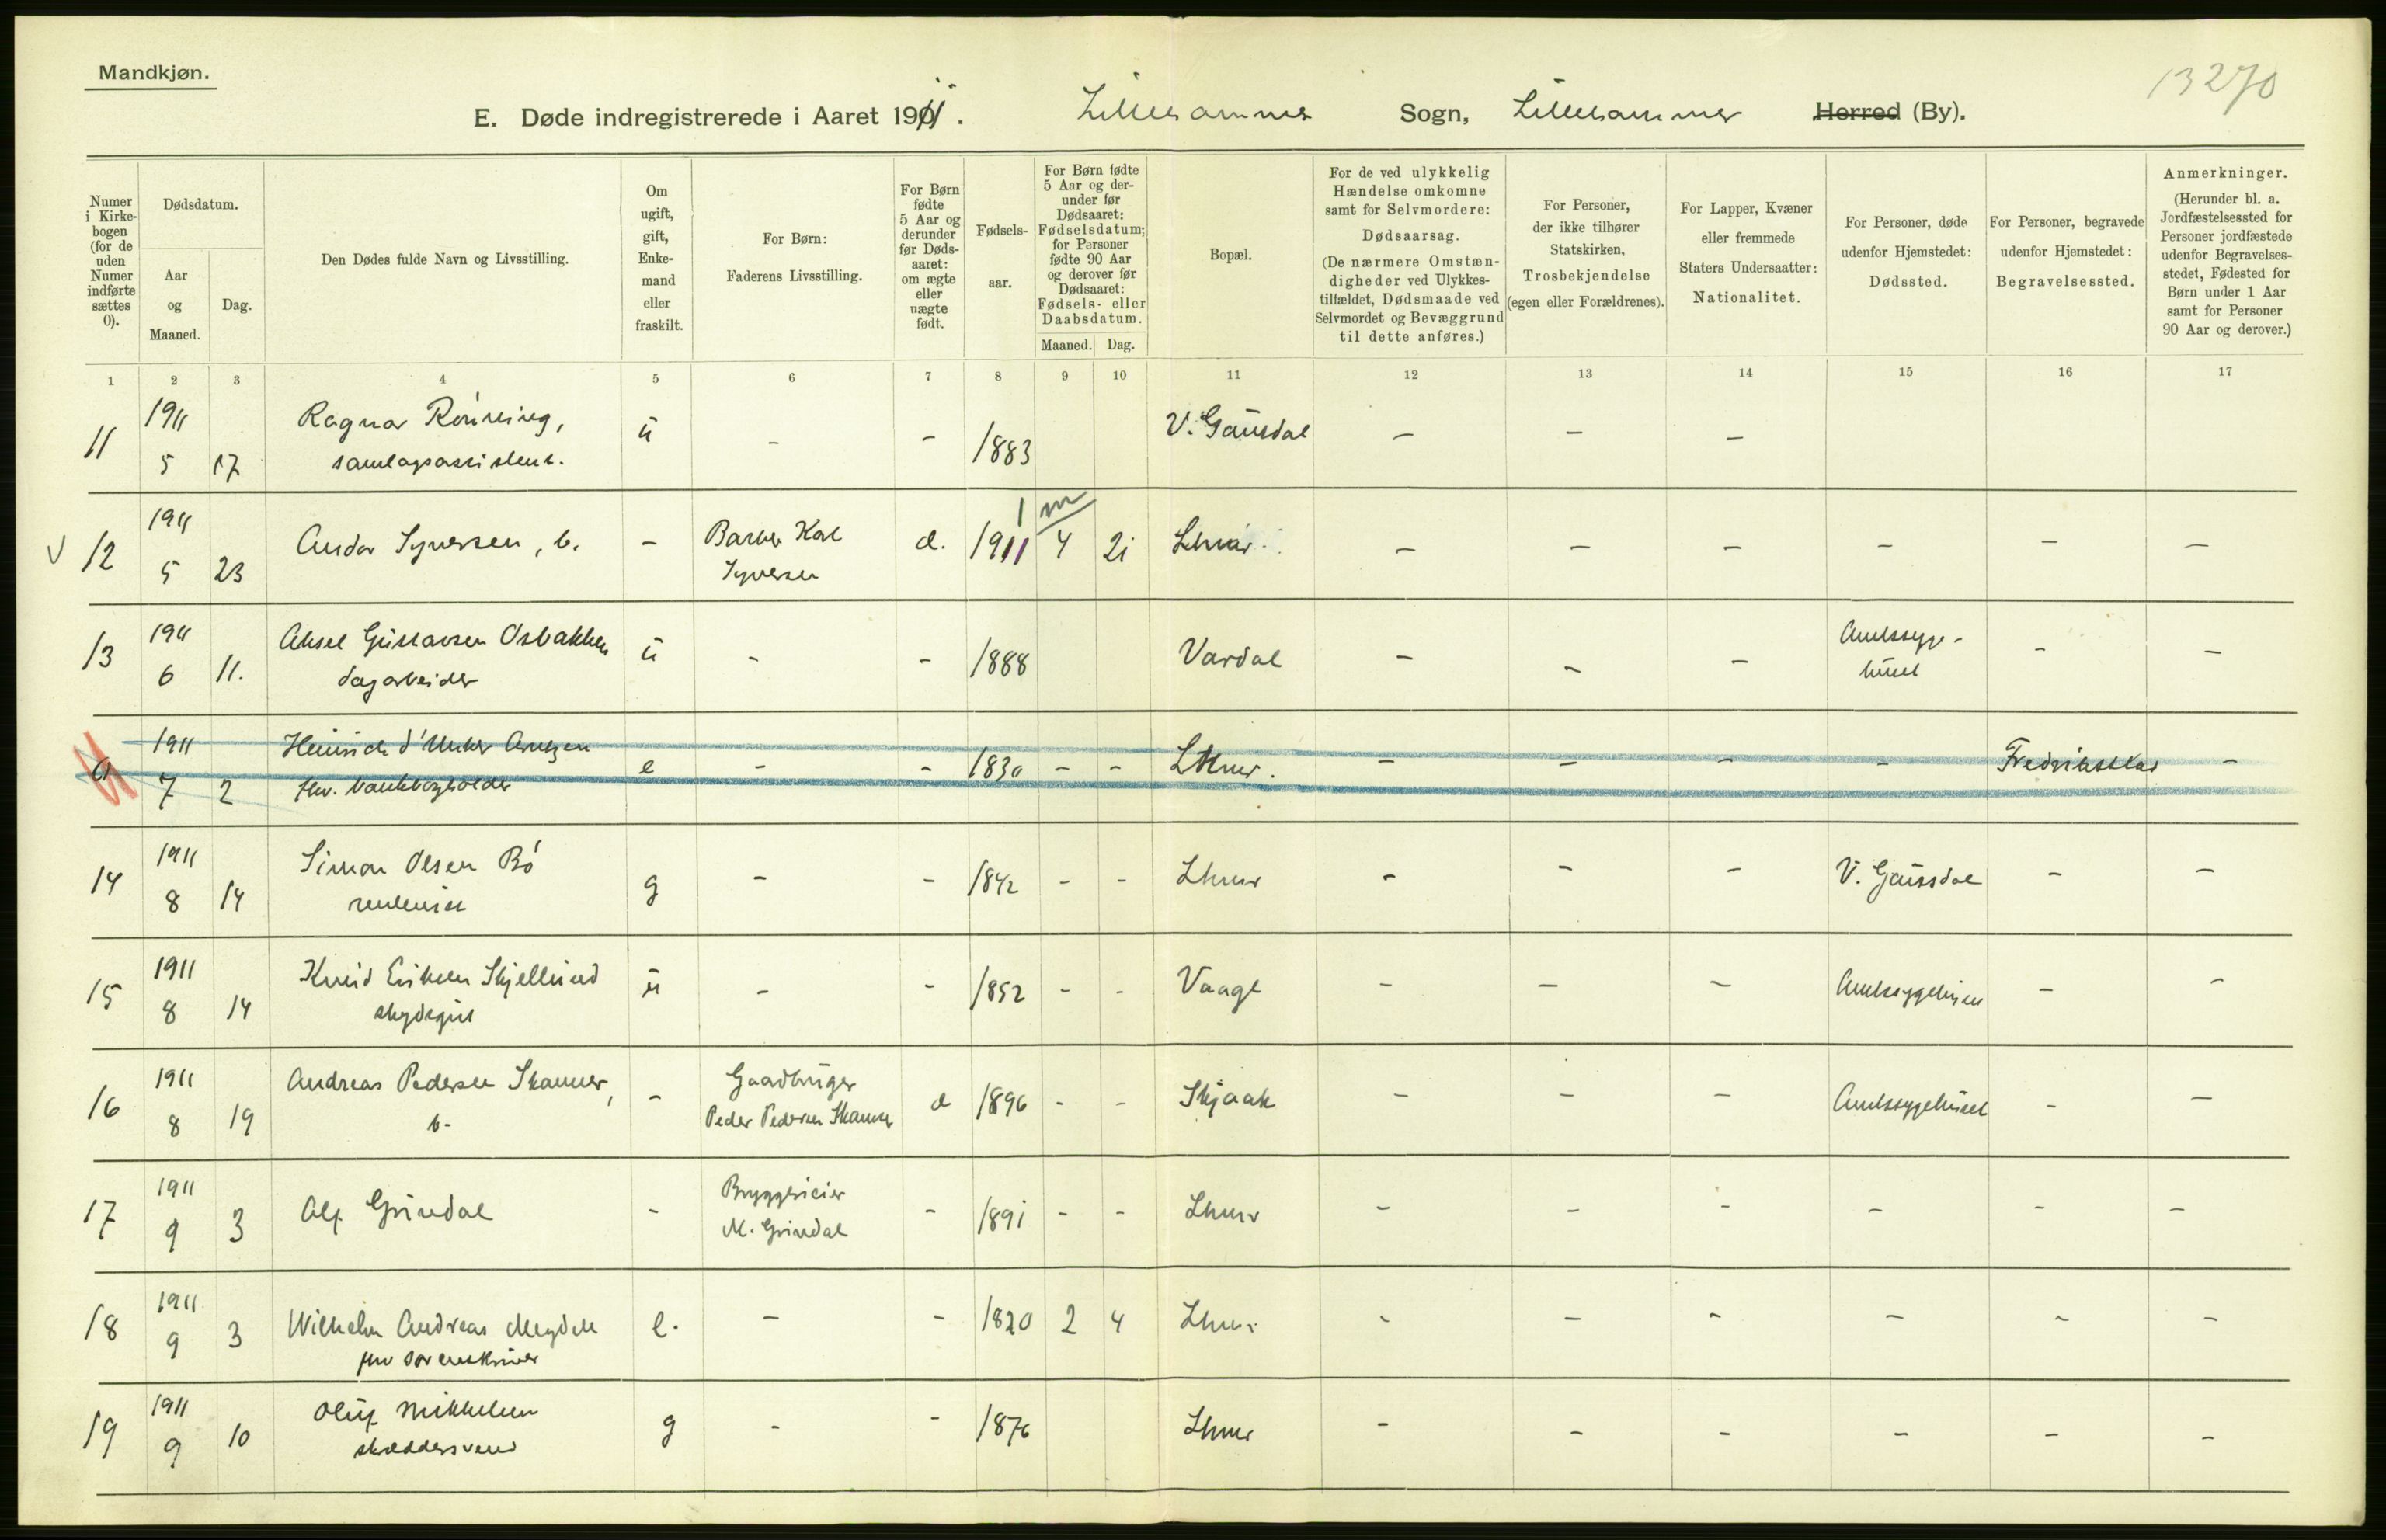 Mandkjøn.
13270
E. Døde indregistrerede i Aaret 1911. Lillehammer Sogn, Lillehammer Herred (By).
Numer i Kirke-bogen (for de uden Numer indførte sættes 0).
Dødsdatum.
Aar og Maaned.
Dag.
Den Dødes fulde Navn og Livsstilling.
Om ugift, gift, Enke-mand eller fraskilt.
For Børn: Faderens Livsstilling.
For Børn fødte 5 Aar og derunder før Døds-aaret: om ægte eller uægte født.
Fødsels-aar.
For Børn fødte 5 Aar og der-under før Dødsaaret: Fødselsdatum; for Personer fødte 90 Aar og derover før Dødsaaret: Fødsels- eller Daabsdatum.
Maaned. Dag.
Bopæl.
For de ved ulykkelig Hændelse omkomne samt for Selvmordere: Dødsaarsag. (De nærmere Omstæn-digheder ved Ulykkes-tilfældet, Dødsmaade ved Selvmordet og Bevæggrund til dette anføres.)
For Personer, der ikke tilhører Statskirken, Trosbekjendelse (egen eller Forældrenes).
For Lapper, Kvæner eller fremmede Staters Undersaatter: Nationalitet.
For Personer, døde udenfor Hjemstedet: Dødssted.
For Personer, begravede udenfor Hjemstedet: Begravelsessted.
Anmerkninger. (Herunder bl. a. Jordfæstelsessted for Personer jordfæstede udenfor Begravelses-stedet, Fødested for Børn under 1 Aar samt for Personer 90 Aar og derover.)
1 2 3 4 5 6 7 8 9 10 11 12 13 14 15 16 17
11 1911 5 17 Ragnar Rönning, ü - - 1883 V. Gausdal - - -
samlagsassistent.
1 m
V 12 1911 5 23 Andor Syversen, b. - Barber Karl Syversen d. 1911 4 21 Lhmr. - - - - - -
13 1911 6 11. Aksel Gustavsen Osbakken ü - - 1888 Vardal - - - Amtssyge-huset - -
dagarbeider
1911 7 2 Heinrich d'Unker Arntzen e - - 1830 - - Lhmr. - - - - Fredrikshald -
fhv. bankbogholder
14 1911 8 14 Simon Olsen Bö g - - 1842 - - Lhmr - - - V. Gausdal - -
rentenist
15 1911 8 14 Knud Eriksen Skjellund ü - - 1852 - - Vaage - - - Amtssygehuset - -
skydsgut
16 1911 8 19 Andreas Pedersen Skamser, - Gaardbruger Peder Pedersen Skamser d 1896 - - Skjaak - - - Amtssygehuset - -
b.
17 1911 9 3 Alf Grindal - Bryggerieier M. Grindal - 1891 - - Lhmr - - - - - -
18 1911 9 3 Wilhelm Andreas Meydell e. - - 1820 2 4 Lhmr - - - - - -
fhv sorenskriver
19 1911 9 10 Oluf Mikkelsen g - - 1876 Lhmr - - - - - -
skræddersvend